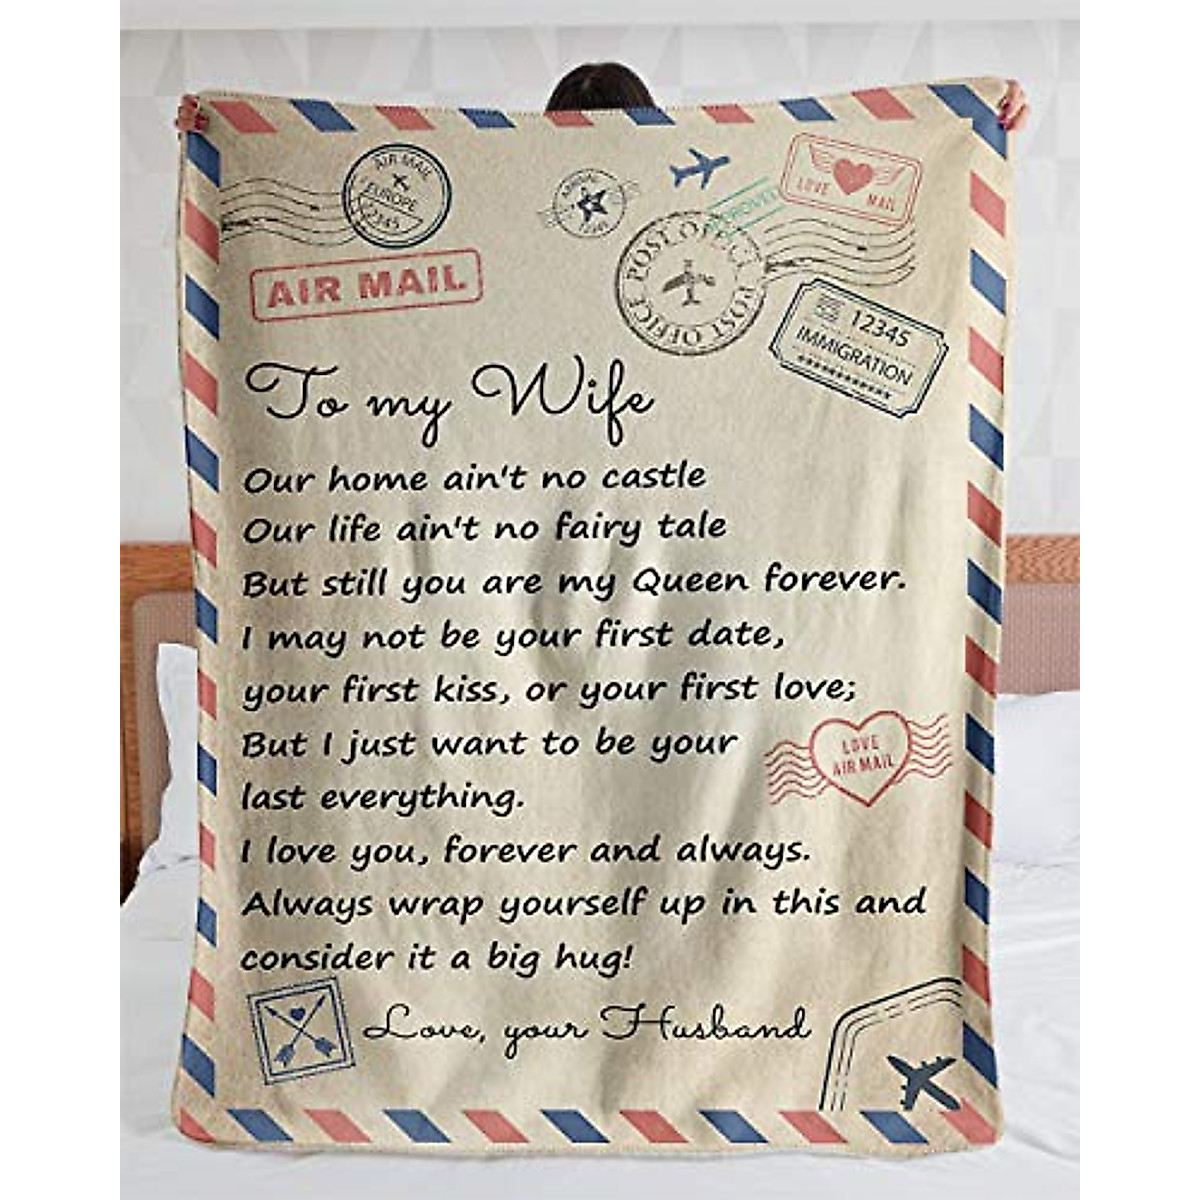 AIR MAIL
EUROPE
12345
AIR MAIL
LOVE MAIL
POST OFFICE
POST OFFICE
12345
IMMIGRATION
To my Wife
Our home ain't no castle
Our life ain't no fairy tale
But still you are my Queen forever.
I may not be your first date,
your first kiss, or your first love;
But I just want to be your
last everything.
LOVE
AIR MAIL
I love you, forever and always.
Always wrap yourself up in this and
consider it a big hug!
Love, your Husband